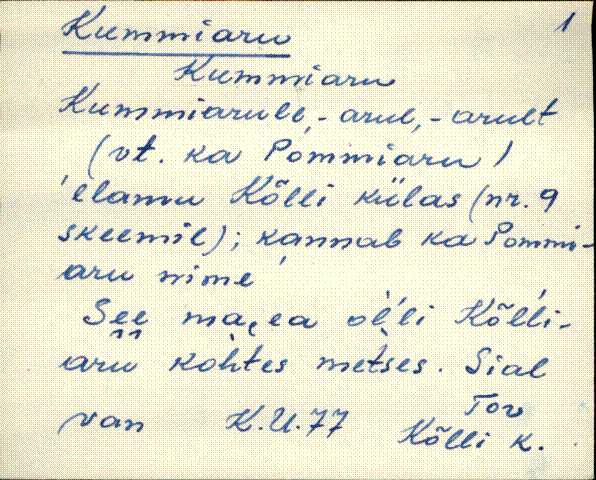 Kummiaru 1
Kummiaru
Kummiarule, -arul, -arult
(vt. ka Pommiaru)
elamu Kõlli külas (nr. 9
skeemil); kannab ka Pommi-
aru nime
See ma ea olli Kõlli-
aru kohtes metses. Sial
van K.U.77 Tor
Kõlli k.